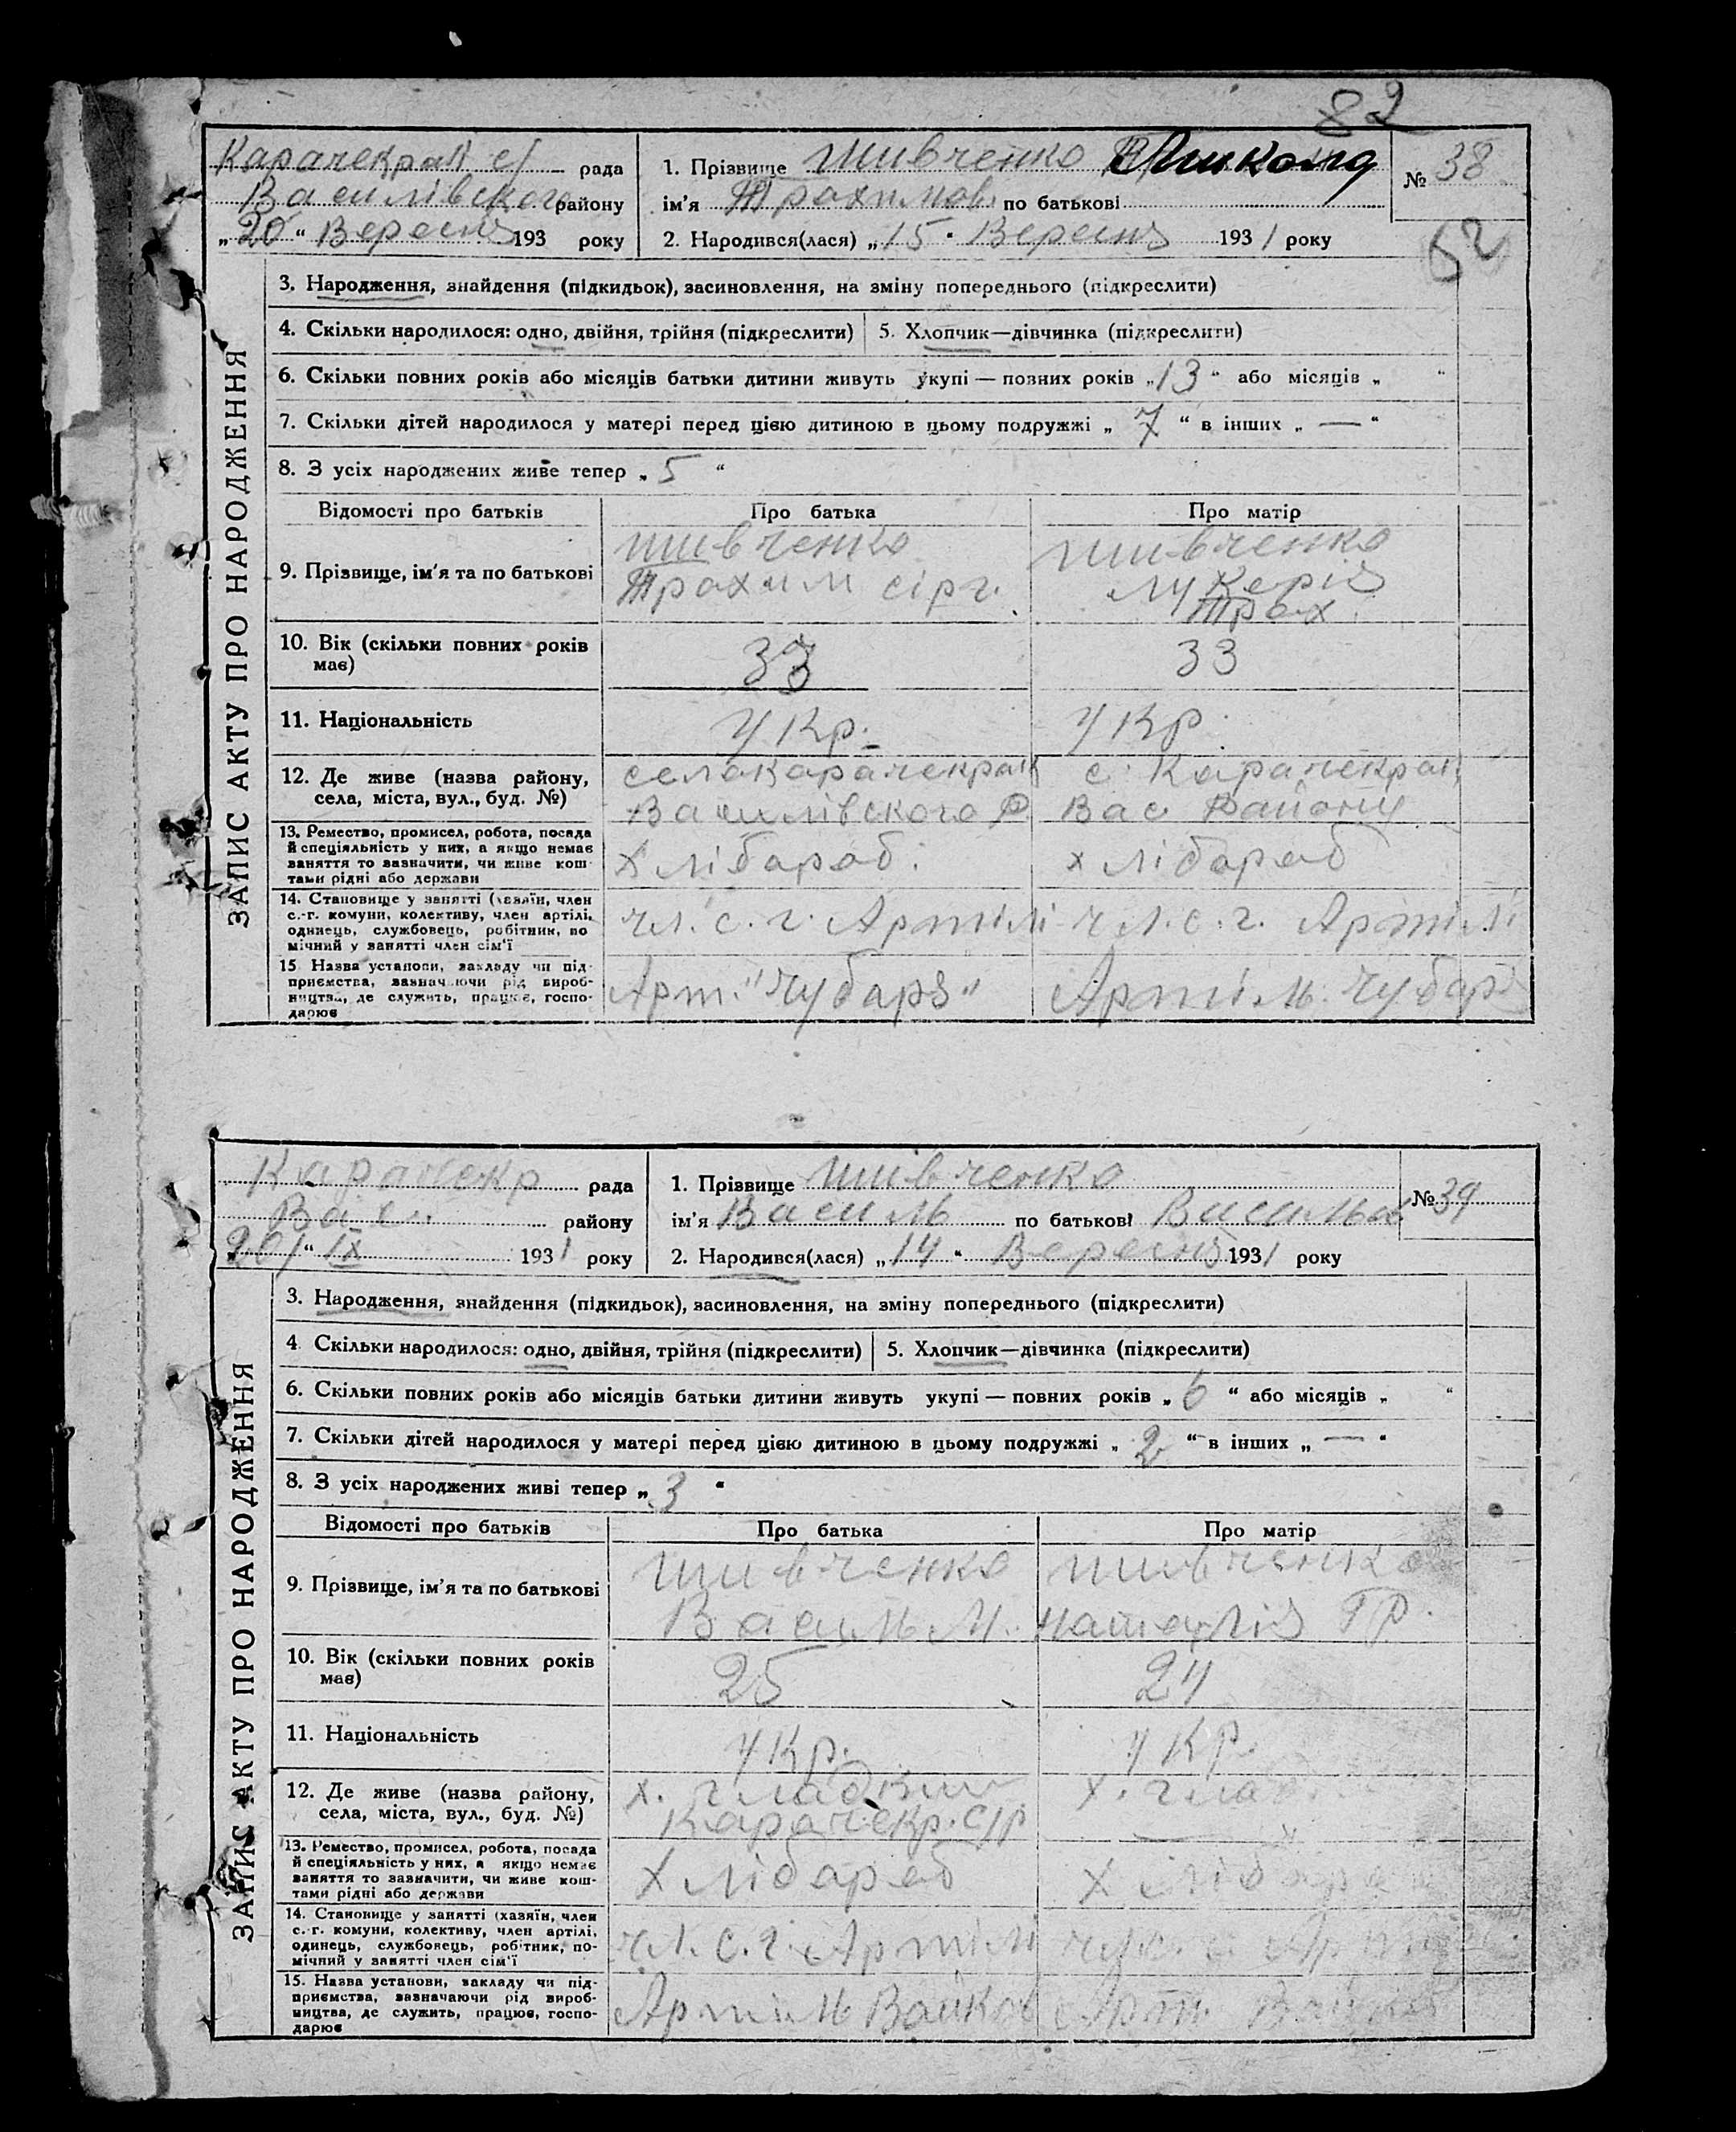 82
Карачекрак с/ рада
Василівского району
„20“ Вересня 193 року
1. Прізвище Шивченко
ім'я Трахимов. по батькові
2. Народився(лася) „15“ Вересня 1931 року
№ 38
52
ЗАПИС АКТУ ПРО НАРОДЖЕННЯ
3. Народження, знайдення (підкидьок), засиновлення, на зміну попереднього (підкреслити)
4. Скільки народилося: одно, двійня, трійня (підкреслити) 5. Хлопчик—дівчинка (підкреслити)
6. Скільки повних років або місяців батьки дитини живуть укупі — повних років „13“ або місяців „ “
7. Скільки дітей народилося у матері перед цією дитиною в цьому подружжі „ 7 “ в інших „ — “
8. З усіх народжених живе тепер „ 5 “
Відомості про батьків Про батька Про матір
9. Прізвище, ім'я та по батькові
Шивченко
Трахим сірг.
Шивченко
Лукерія
Трах.
10. Вік (скільки повних років
має)
33
33
11. Національність
Укр.
Укр.
12. Де живе (назва району,
села, міста, вул., буд. №)
село Карачекрак
Василівского Р
с. Карачекрак
Вас Району
13. Ремество, промисел, робота, посада
й спеціяльність у них, а якщо немає
заняття то зазначити, чи живе кош-
тами рідні або держави
Хлібароб.
хлібароб
14. Становище у занятті (хазяїн, член
с.-г. комуни, колективу, член артілі,
одинець, службовець, робітник, по
мічний у занятті член сім'ї
чл. с. г. Артілі
чл. с. г. Артілі
15 Назва установи, закладу чи під-
приємства, зазначаючи рід вироб-
ництва, де служить, працює, госпо-
дарює
Арт. "Чубаря"
Артіль Чубаря
Карачекр рада
Вас. району
20/“ IX 1931 року
1. Прізвище Шивченко
ім'я Василь по батькові Васильов
2. Народився(лася) „14“ Вересня 1931 року
№ 39
ЗАПИС АКТУ ПРО НАРОДЖЕННЯ
3. Народження, знайдення (підкидьок), засиновлення, на зміну попереднього (підкреслити)
4 Скільки народилося: одно, двійня, трійня (підкреслити) 5. Хлопчик—дівчинка (підкреслити)
6. Скільки повних років або місяців батьки дитини живуть укупі — повних років „ 6 “ або місяців „ “
7. Скільки дітей народилося у матері перед цією дитиною в цьому подружжі „ 2 “ в інших „ — “
8. З усіх народжених живі тепер „ 3 “
Відомості про батьків Про батька Про матір
9. Прізвище, ім'я та по батькові
Шивченко
Василь М.
Шивченко
Наталія ГР.
10. Вік (скільки повних років
має)
25
24
11. Національність
Укр.
Укр.
12. Де живе (назва району,
села, міста, вул., буд. №)
х. гладкий
Карачекр. С/р
х. глад
13. Ремество, промисел, робота, посада
й спеціяльність у них, а якщо немає
заняття то зазначити, чи живе кош-
тами рідні або держави
Хлібароб
Хлібароб
14. Становище у занятті (хазяїн, член
с.-г. комуни, колективу, член артілі,
одинець, службовець, робітник, по-
мічний у занятті член сім'ї
чл. с. г. Артілі
15. Назва установи, закладу чи під-
приємства, зазначаючи рід вироб-
ництва, де служить, працює, госпо-
дарює
Артіль Войков
Арт.